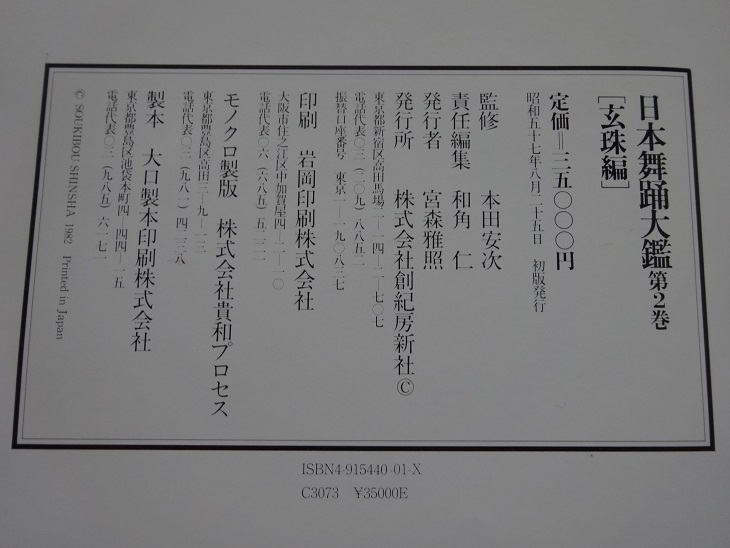 日本舞踊大鑑 第2巻
［玄珠編］
定価＝三五〇〇〇円
昭和五十七年八月二十五日　初版発行
監修　本田安次
責任編集　和角　仁
発行者　宮森雅照
発行所　株式会社創紀房新社©
東京都新宿区高田馬場二―一四―二―七〇七
電話代表〇三（二〇九）八八五二
振替口座番号　東京一―一九〇八三七
印刷　岩岡印刷株式会社
大阪市住之江区中加賀屋四―二―一〇
電話代表〇六（六八五）五一三一
モノクロ製版　株式会社貴和プロセス
東京都豊島区高田三―九―一三
電話代表〇三（九八一）四二三八
製本　大口製本印刷株式会社
東京都豊島区池袋本町四―四四―一五
電話代表〇三（九八五）六一七一
© SOUKIBOU SHINSHA 1982 Printed in Japan
ISBN4-915440-01-X
C3073　¥35000E